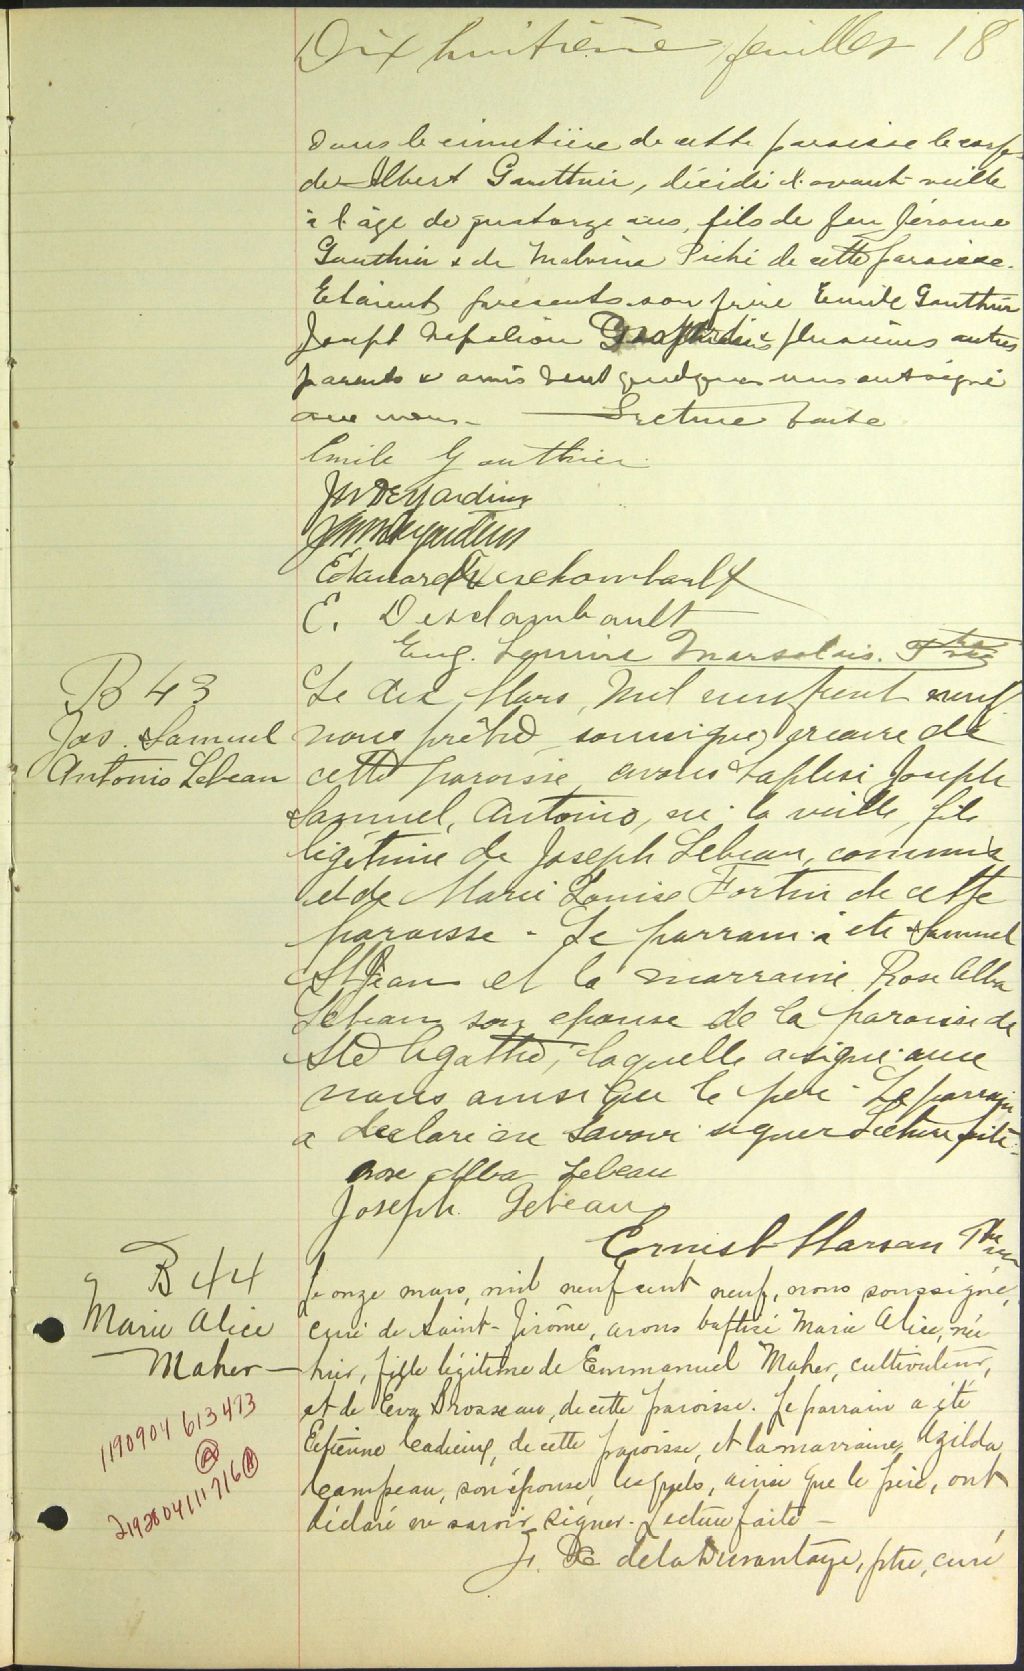 Dix huitième feuillet 18
dans le cimetière de cette paroisse le corps
de Albert Gauthier, décédé l'avant-veille
à l'âge de quatorze ans, fils de feu Jérome
Gauthier & de Malvina Piché de cette paroisse.
Etaient présents son frère Emile Gauthier
Joseph Napoléon & plusieurs autres
parents & amis dont quelques uns ont signé
avec nous. Lecture faite
Emile Gauthier
JN Desjardins
Edouard Deschambault
E. Deschambault
Eug. Lemire Marsolais. Ptre
B 43
Jos. Samuel
Antonio Lebeau
Le dix Mars, mil neuf cent neuf
nous prêtre soussigné, vicaire de
cette paroisse, avons baptisé Joseph
Samuel, Antonio, né la veille, fils
légitime de Joseph Lebeau, commis
et de Marie Louise Fortin de cette
paroisse - Le parrain a été Samuel
St Jean et la marraine Rose Alba
Lebeau son epouse de la paroisse de
Ste Agathe, laquelle a signé avec
nous ainsi que le père - Le parrain
a declaré ne savoir signer Lecture faite.
Rose Alba Lebeau
Joseph Lebeau
Ernest Marsan Ptre vic
B 44
Marie Alice
Maher
Le onze mars, mil neuf cent neuf, nous soussigné,
curé de Saint-Jérôme, avons baptisé Marie Alice, née
hier, fille légitime de Emmanuel Maher, cultivateur,
et de Eva Brosseau, de cette paroisse. Le parrain a été
Etienne Cadieux, de cette paroisse, et la marraine, Azilda
Campeau, son épouse, lesquels, ainsi que le père, ont
déclaré ne savoir signer. Lecture faite -
de la Durantaye, ptre, curé
1190904 613473
A